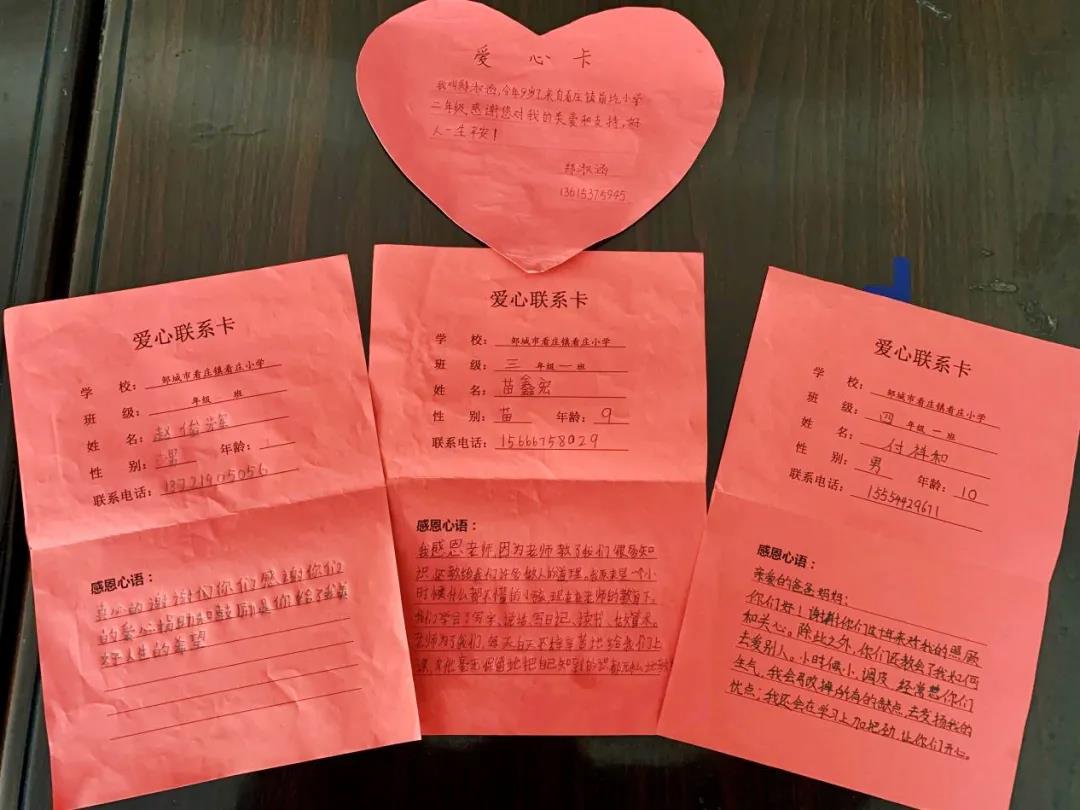 爱 心 卡
我叫郑淑涵,今年9岁了,来自看庄镇前圪小学
二年级,感谢您对我的关爱和支持,好
人一生平安!
郑淑涵
13615375945
爱心联系卡
学 校: 邹城市看庄镇看庄小学
班 级: 年级 班
姓 名: 赵俊
性 别: 男 年龄:
联系电话: 13721905056
感恩心语:
真心的谢谢们你们感谢你们
的爱心捐助和鼓励是你给了我美
好人生的希望
爱心联系卡
学 校: 邹城市看庄镇看庄小学
班 级: 三 年级 一 班
姓 名: 苗鑫宏
性 别: 苗 年龄: 9
联系电话: 15666758029
感恩心语:
我感恩老师,因为老师教了我们很多知
识,还教给我们许多做人的道理。我原来是一个小
时候什么都不懂的小孩,现在在老师的教育下,
我们学会了写字、说话、写日记、读书、做算术。
老师为了我们,每天白天不辞辛苦地给我们上
课,老师毫无保留地把自己知到的识都无私地
爱心联系卡
学 校: 邹城市看庄镇看庄小学
班 级: 四 年级 一 班
姓 名: 付祥和
性 别: 男 年龄: 10
联系电话: 15554429671
感恩心语:
亲爱的爸爸妈妈:
你们好!谢谢你们这十年来对我的照顾
和关心。除此之外,你们还教会了我如何
去爱别人。小时候小,调皮,经常惹你们
生气,我会再改掉所有的缺点,去发扬我的
优点;我还会在学习上加把劲,让你们开心。